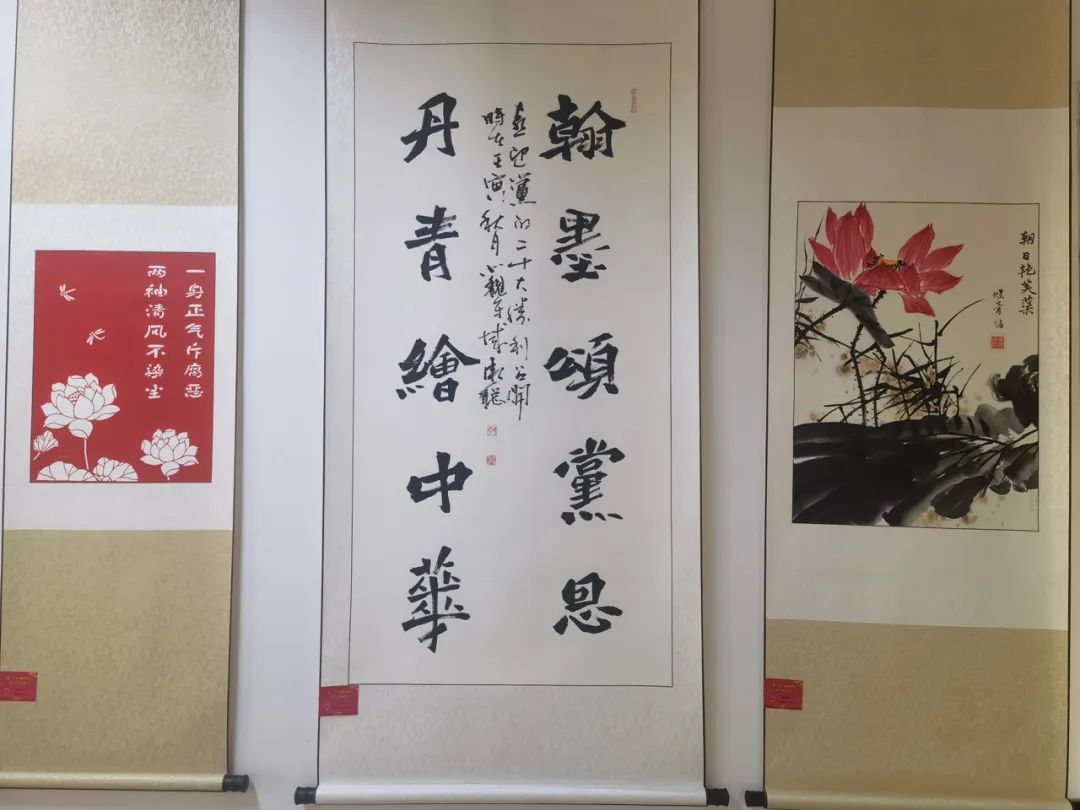 一身正气斥腐恶
两袖清风不染尘
翰墨頌黨恩
喜迎黨的二十大勝利召開
時在壬寅秋月
丹青繪中華
朝日艳芙蓉